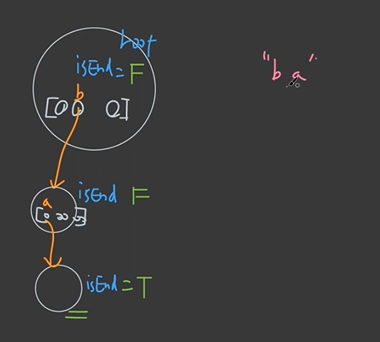 root
isEnd = F
"ba"
b
[00 0]
isEnd F
a
isEnd = T